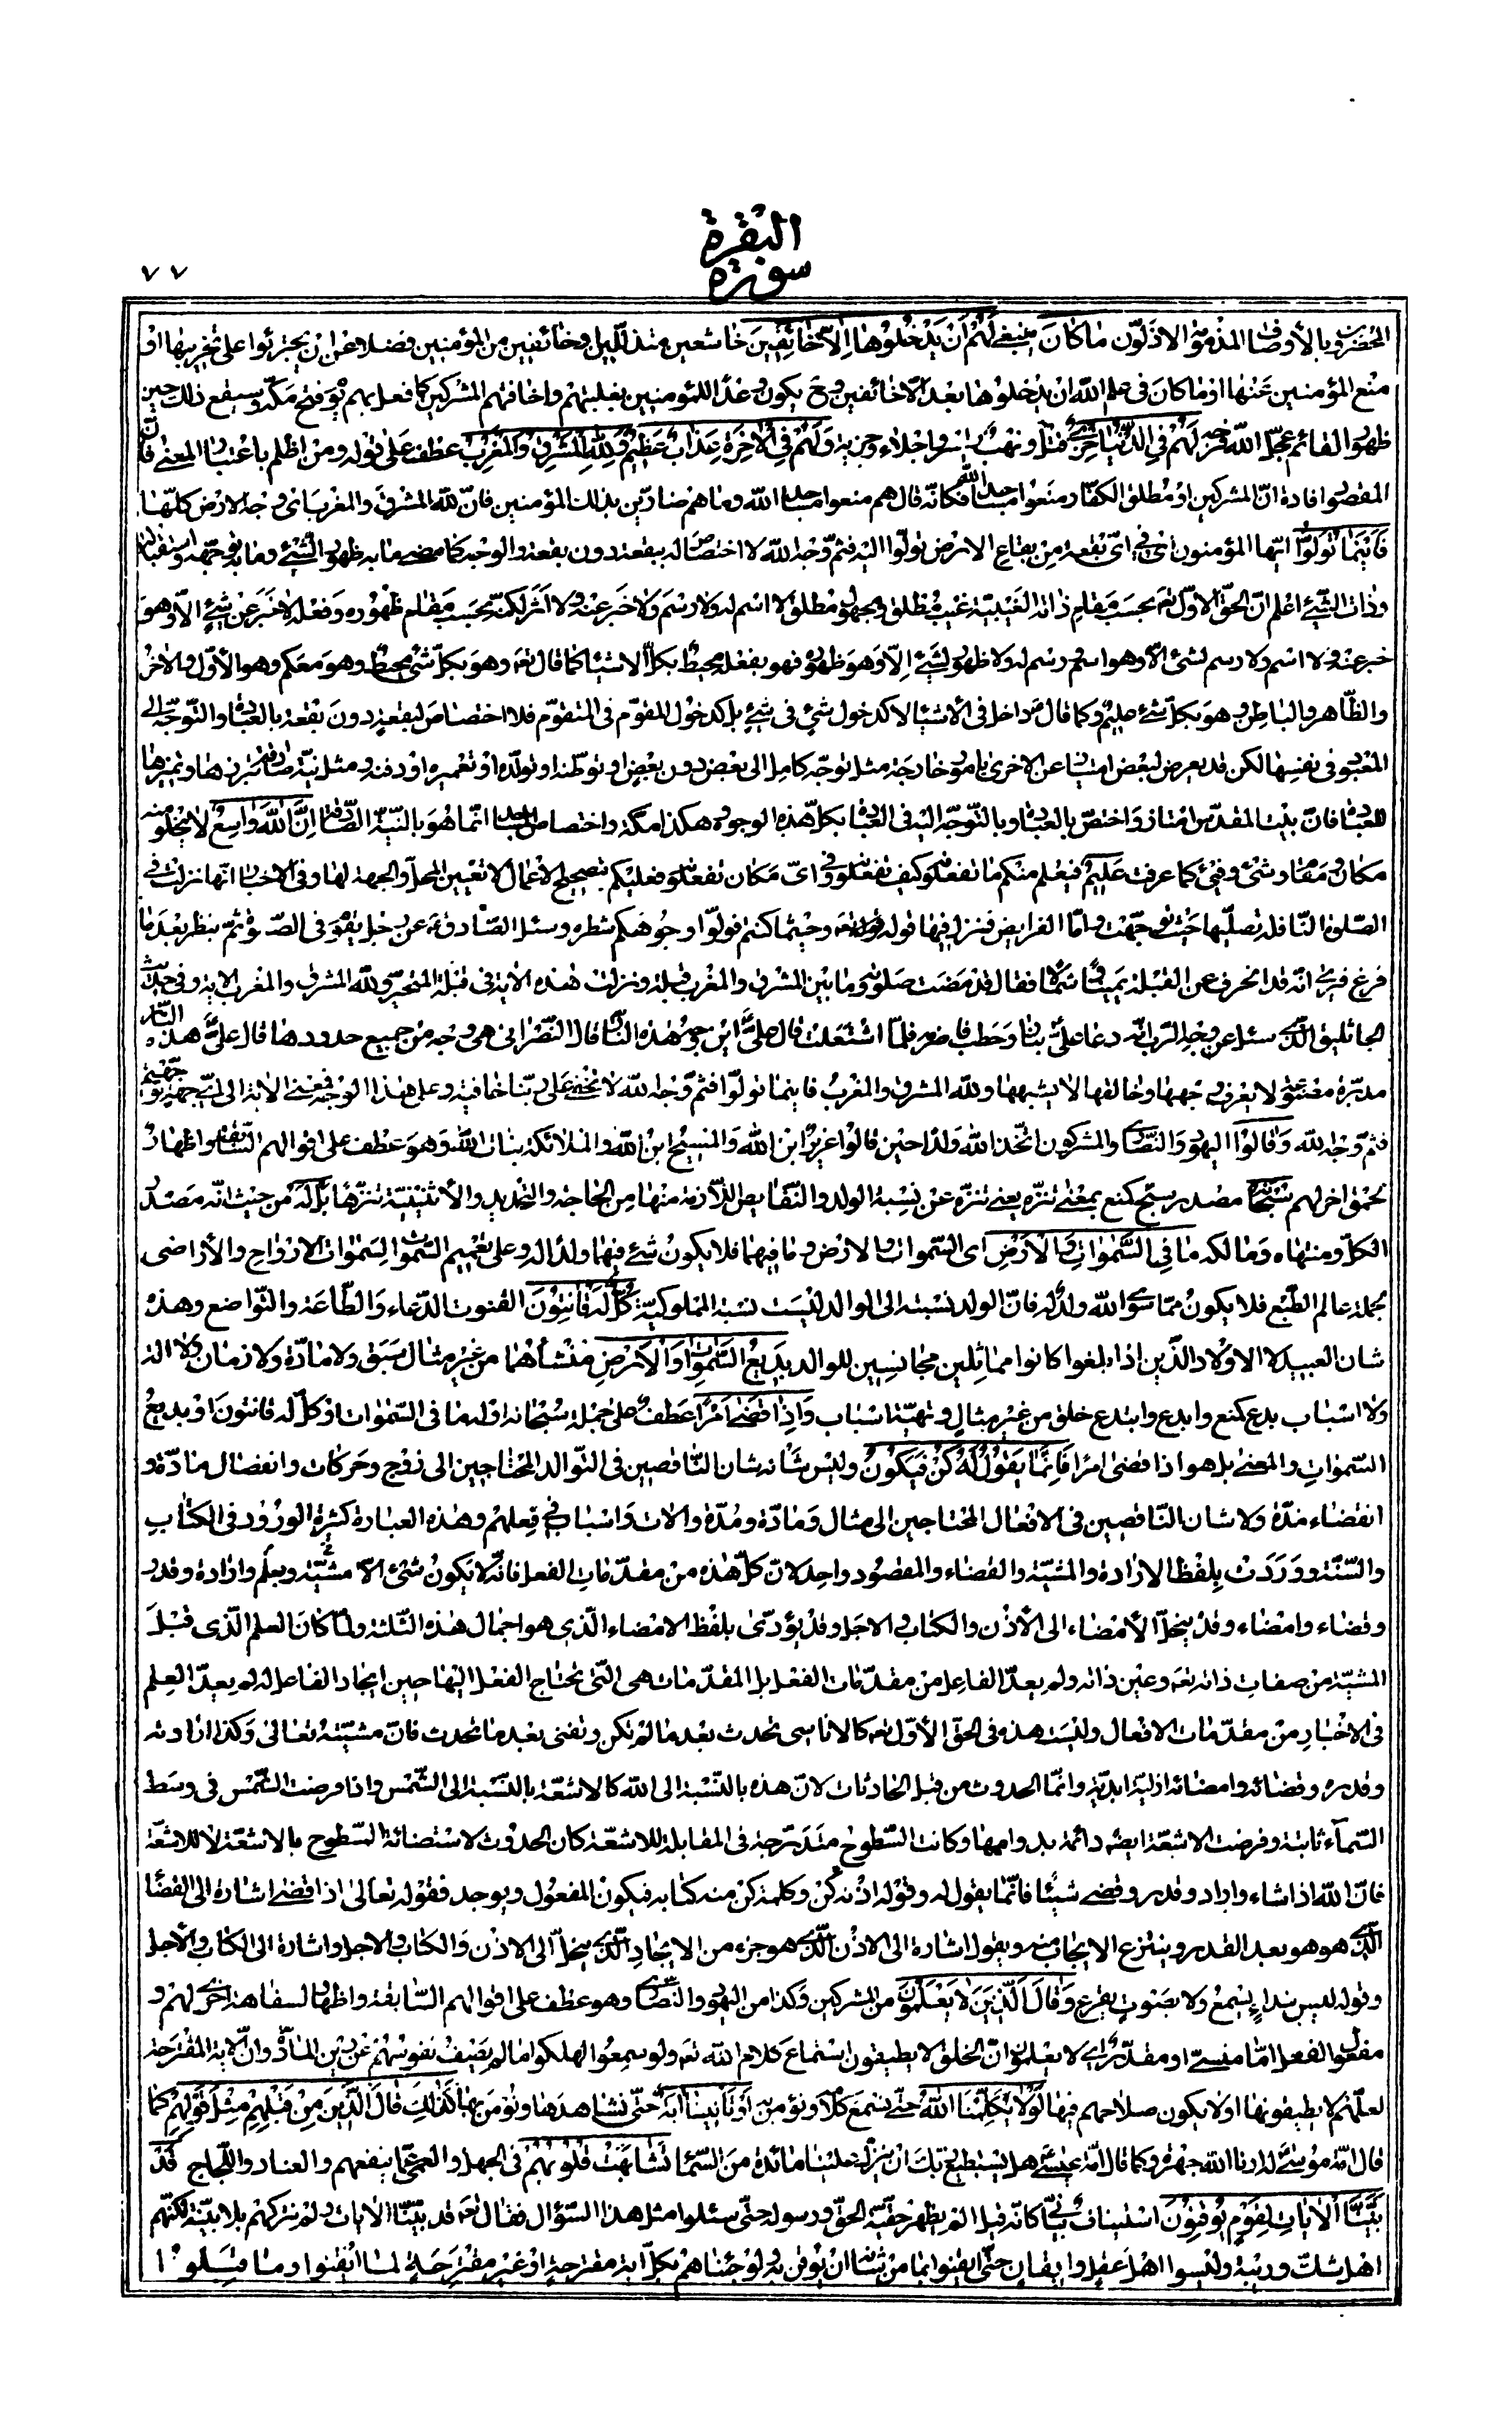 البقرة
سورة
٧٧
المحضرون بالأوصاف المذمومة الاذلّون ما كَانَ ينبغى لَهُمْ أَنْ يَدْخُلُوهَا إِلَّا خَائِفِينَ خاشعين متذلّلين وخائفين من المؤمنين فضلا عن ان يجترئوا على تخريبها او
منع المؤمنين عنها او ما كان فى علم الله ان يدخلوها بعد الّا خائفين وح يكون وعدًا للمؤمنين بغلبتهم واخافتهم المشركين كما فعل بهم يوم فتح مكّة وسيقع ذلك حين
ظهور القائم عجّل الله فرجه لَهُمْ فِي الدُّنْيَا خِزْيٌ قتل ونهب واسر واجلاء وجزية وَلَهُمْ فِي الْآخِرَةِ عَذَابٌ عَظِيمٌ وَلِلَّهِ الْمَشْرِقُ وَالْمَغْرِبُ عطف على قوله ومن اظلم باعتبار المعنى فانّ
المقصود افادة انّ المشركين او مطلق الكفّار منعوا مساجد الله فكانّه قال هم منعوا مساجد الله وما هم ضارّين بذلك المؤمنين فانّ لله المشرق والمغرب اى وجه الارض كلّها
فَأَيْنَمَا تُوَلُّوا ايّها المؤمنون اى فى اىّ بقعة من بقاع الارض تولّوا اليه فثمّ وجه الله لا اختصاص له ببقعة دون بقعة والوجه كما مضى ما به ظهور الشّىء وما به توجّهه واستقباله
وذات الشّىء اعلم انّ الحقّ الاوّل تعالى بحسب مقام ذاته الغيبيّة غيب مطلق ومجهول مطلق لا اسم له ولا رسم ولا خبر عنه ولا اثر لكنّه بحسب مقام ظهوره وفعله لا خبر عن شىء الّا وهو
خبر عنه ولا اسم ولا رسم لشىء الّا وهو اسم ورسم له ولا ظهور لشىء الّا وهو ظهوره فهو بفعله محيط بكلّ الاشياء كما قال تعالى وهو بكلّ شىء محيط وهو معكم وهو الأوّل والآخر
والظّاهر والباطن وهو بكلّ شىء عليم وكما قال داخل فى الأشياء لا كدخول شىء فى شىء بل كدخول المقوّم فى المتقوّم فلا اختصاص لبقعة دون بقعة بالعبادة والتّوجّه الى
المعبود فى نفسها لكن قد يعرض لبعض امتياز عن الاخرى بامور خارجة مثل توجّه كامل الى بعض دون بعض او توطّنه او تولّده او تعميره او دفنه ومثل نيّة صادقة تبرزها وتميّزها
للعبادة فانّ بيت المقدّس امتاز واختصّ بالعبادة وبالتّوجّه اليه فى العبادة بكلّ هذه الوجوه وهكذا مكّة واختصاص المساجد انّما هو بالنّيّة الصّادقة إِنَّ اللَّهَ وَاسِعٌ لا يخلو منه
مكان ومقام وشىء وفىء كما عرفت عَلِيمٌ فيعلم منكم ما تفعلونه وكيف تفعلونه وفى اىّ مكان تفعلونه فعليكم بتصحيح الاعمال لا تعيين المحلّ والجهة لها وفى الاخبار انّها نزلت فى
الصّلوة النّافلة تصلّيها حيث توجّهت وامّا الفرايض فنزل فيها قوله تعالى وحيثما كنتم فولّوا وجوهكم شطره وسئل الصّادق عن رجل يقوم فى الصّلوة ثم ينظر بعد ما
فرغ فيرى انّه قد انحرف عن القبلة يمينًا او شمالًا فقال قد مضت صلوته وما بين المشرق والمغرب قبلة ونزلت هذه الآية فى قبلة المتحيّر ولله المشرق والمغرب الآية وفى حديث
الجاثليق الّذى سئل عن وجه الرّب انّه دعا علىّ بنار وحطب فاضرمه فلمّا اشتعلت قال علىّ اين وجه هذه النّار قال النّصرانى هى وجه من جميع حدودها قال علىّ هذه النّار
مدبّرة مصنوعة لا يعرف وجهها وخالقها لا يشبهها ولله المشرق والمغرب فاينما تولّوا فثمّ وجه الله لا يخفى على ربّنا خافية وعلى هذا الوجه فمعنى الآية الى اىّ جهة تولّوا
فثمّ وجه الله وَقَالُوا اليهود والنّصارى والمشركون اتّخذ الله ولدًا حين قالوا عزير ابن الله والمسيح ابن الله والملائكة بنات الله وهو عطف على اقوالهم السّابقة واظهار
لحمق آخر لهم سُبْحَانَهُ مصدر سبح كمنع بمعنى تنزّه يعنى تنزّه عن نسبة الولد والنّقايص اللّازمة منها من الحاجة والتّحديد والأثنينيّة تنزّهًا بَلْ لَهُ من حيث انّه مصدر
الكلّ ومنتهاه ومالكه مَا فِي السَّمَاوَاتِ وَالْأَرْضِ اى السّموات والارض وما فيهما فلا يكون شىء فيهما ولدًا له وعلى تعميم السّموات لسموات الارواح والأراضى
بجملة عالم الطّبع فلا يكون ممّا سوى الله ولد له فانّ الولد نسبته الى الوالد ليست نسبة المملوكيّة كُلٌّ لَهُ قَانِتُونَ القنوت الدّعاء والطّاعة والتّواضع وهذه
شان العبيد لا الاولاد الّذين اذا بلغوا كانوا مماثلين مجانسين للوالد بَدِيعُ السَّمَاوَاتِ وَالْأَرْضِ منشأهما من غير مثال سبق ولا مادّة ولا زمان ولا الة
ولا اسباب بدع كمنع وابدع وابتدع خلق من غير مثال وتهيّة اسباب وَإِذَا قَضَى أَمْرًا عطف على جملة سبحانه او له ما فى السّموات او كلّ له قانتون او بديع
السّموات والمعنى بل هو اذا قضى امرًا فَإِنَّمَا يَقُولُ لَهُ كُنْ فَيَكُونُ وليس شأنه شان النّاقصين فى التّوالد المحتاجين الى زوج وحركات وانفصال مادّة و
انقضاء مدّة ولا شان النّاقصين فى الافعال المحتاجين الى مثال ومادّة ومدّة والات واسباب فى فعلهم وهذه العبارة كثيرة الورود فى الكتاب
والسّنّة ووردت بلفظ الارادة والمشيّة والقضاء والمقصود واحد لانّ كلّ هذه من مقدّمات الفعل فانّه لا يكون شىء الّا بمشيّة وبعلم وارادة وقدر
وقضاء وامضاء وقد يحلّ الأمضاء الى الأذن والكتاب والاجل وقد يؤدّى بلفظ الامضاء الّذى هو اجمال هذه الثّلثة ولمّا كان العلم الّذى قبل
المشيّة من صفات ذاته تعالى وعين ذاته ولم يعدّ الفاعل من مقدّمات الفعل بل المقدّمات هى الّتى يحتاج الفعل اليها حين ايجاد الفاعل له لم يعدّ العلم
فى الاخبار من مقدّمات الافعال وليست هذه فى الحقّ الأوّل تعالى كالاناسى تحدث بعد ما لم تكن وتفنى بعد ما تحدث فانّ مشيّته تعالى وكذا ارادته
وقدره وقضائه وامضائه ازليّة ابديّة وانّما الحدوث من قبل الحادثات لانّ هذه بالنّسبة الى الله كالاشعّة بالنّسبة الى الشّمس واذا فرضت الشّمس فى وسط
السّماء ثابتة وفرضت الاشعّة ايضا دائمة بدوامها وكانت السّطوح متدرّجة فى المقابلة للاشعّة كان الحدوث لاستضائة السّطوح بالاشعّة لا للاشعّة
فانّ الله اذا شاء واراد وقدر وقضى شيئًا فانّما يقول له وقوله اذنه كن وكلمة كن منه كتابه فيكون المفعول ويوجد فقوله تعالى اذا قضى اشارة الى القضاء
الّذى هو هو بعد القدر وينتزع الايجاب منه ويقول اشارة الى الاذن الّذى هو جزء من الايجاد الّذى يحلّ الى الاذن والكتاب والاجل واشارة الى الكتاب والاجل
وقوله ليس بنداء يسمع ولا بصوت يقرع وَقَالَ الَّذِينَ لَا يَعْلَمُونَ من المشركين وكذا من اليهود والنّصارى وهو عطف على اقوالهم السّابقة واظهار لسفاهة اخرى لهم و
مفعول الفعل امّا منسىّ او مقدّر اى لا يعلمون انّ الخلق لا يطيقون استماع كلام الله تعالى ولو سمعوا لهلكوا ما لم يصف نفوسهم عن رين المادّة وانّ الآية المقترحة
لعلّهم لا يطيقونها او لا يكون صلاحهم فيها لَوْلَا يُكَلِّمُنَا اللَّهُ حتّى نسمع كلامه ونؤمن به أَوْ تَأْتِينَا آيَةٌ حتّى نشاهدها ونؤمن بها كَذَلِكَ قَالَ الَّذِينَ مِنْ قَبْلِهِمْ مِثْلَ قَوْلِهِمْ كما
قال امّة موسى ارنا الله جهرة وكما قال امّة عيسى هل يستطيع ربّك ان ينزّل علينا مائدة من السّماء تَشَابَهَتْ قُلُوبُهُمْ فى الجهل والعمى عمّا ينفعهم والعناد واللّجاج قَدْ
بَيَّنَّا الْآيَاتِ لِقَوْمٍ يُوقِنُونَ استيناف بيانىّ كانّه قيل الم يظهر حقّيّة الحقّ ورسوله حتّى سئلوا مثل هذا السّؤال فقال تعالى قد بيّنّا الآيات ولم نتركهم بلا بيّنة لكنّهم
اهل شكّ وريبة وليسوا اهل عقل وايقان حتّى ايقنوا بما من شأنه ان يوقن به ولو جئناهم بكلّ اية مقترحة او غير مقترحة لما ايقنوا وما قبلوا